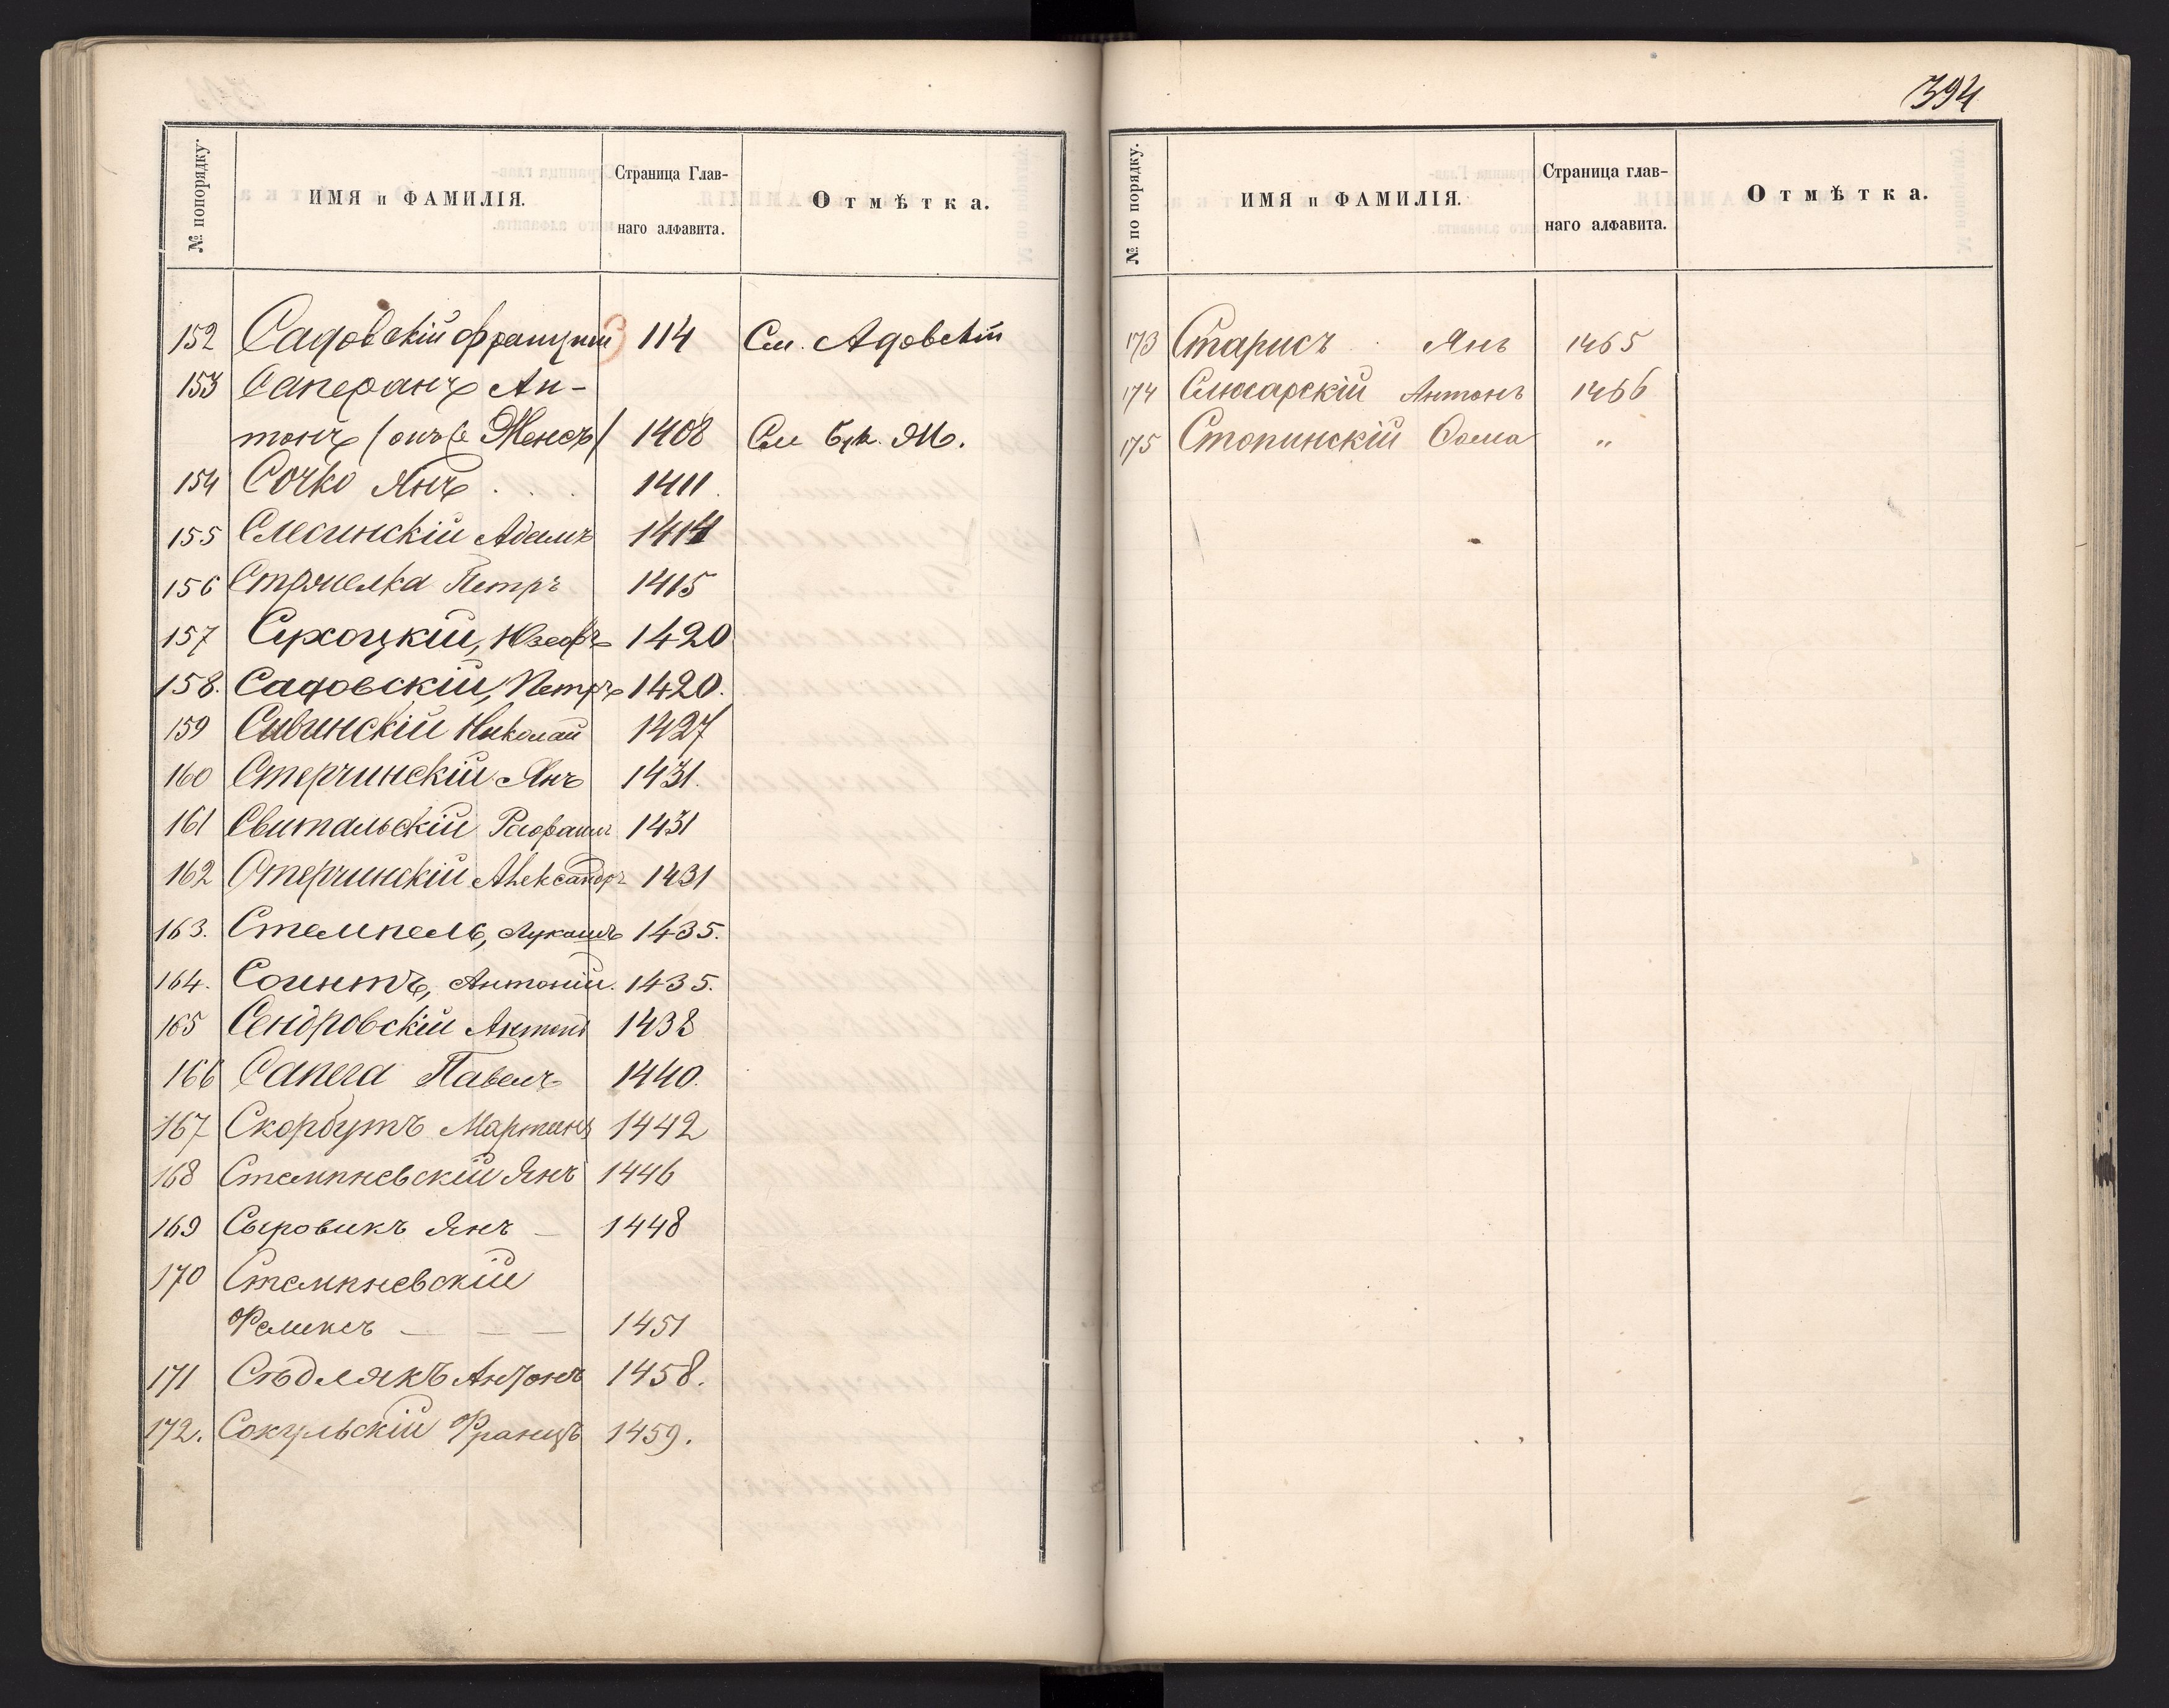 394
№ попорядку.
ИМЯ и ФАМИЛІЯ.
Страница Глав-
наго алфавита.
Отмѣтка.
152 Садовскій Францъ 114 См. Адовскій
153 Саперанъ Ан-
тонъ (онъ же Женсъ) 1408 См бук. Ж.
154 Сочко Янъ 1411
155 Слесинскій Адамъ 1414
156 Стржелка Петръ 1415
157 Сухоцкій, Юзефъ 1420
158. Садовскій, Петръ 1420.
159 Сивинскій Николай 1427
160 Стерчинскій Янъ 1431.
161 Свитальскій 1431
162 Стерчинскій Александръ 1431
163. Стемпель, Лукашъ 1435.
164. Антоній. 1435.
165 Сендровскій Антонъ 1438
166 Сапега Павелъ 1440.
167 Скорбутъ Мартинъ 1442
168 Стемпневскій Янъ 1446
169 Сыровикъ Янъ — 1448
170 Стемпневскій
Феликсъ — — — 1451
171 Сѣдлякъ Антонъ 1458.
172. Сокульскій Францъ 1459.
№ по порядку.
ИМЯ и ФАМИЛІЯ.
Страница глав-
наго алфавита.
Отмѣтка.
173 Старисъ Янъ 1465
174 Слюсарскій Антонъ 1466
175 Стопинскій Ѳома "